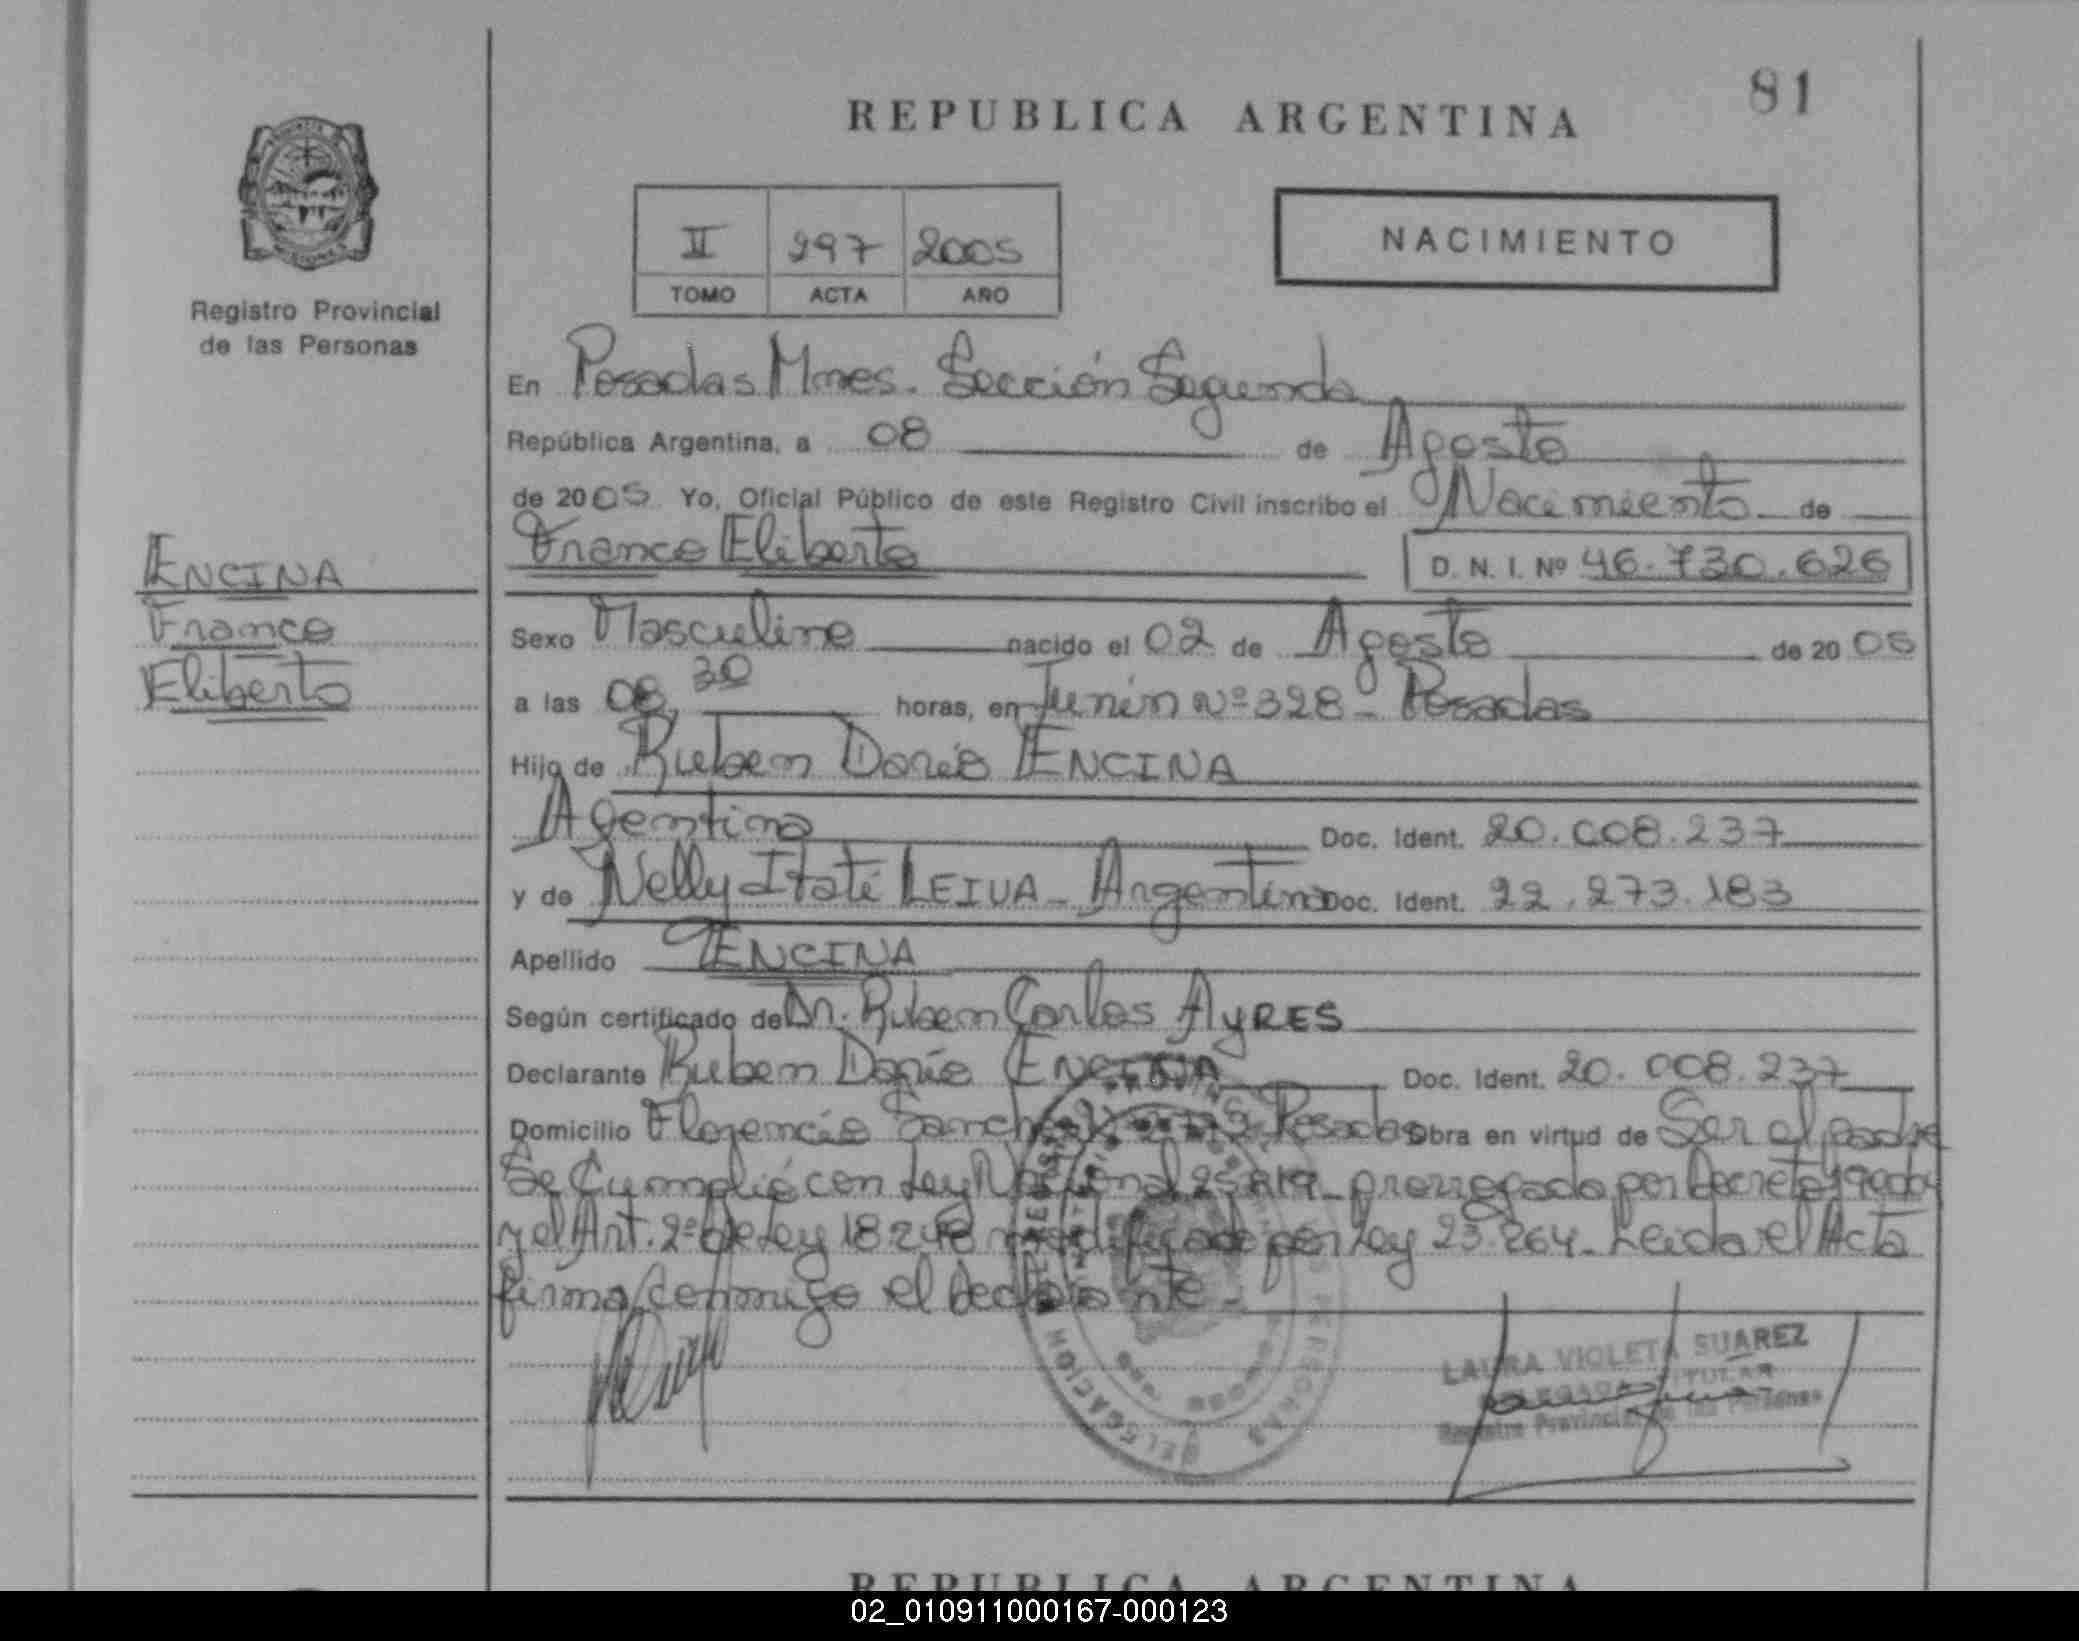 81
REPUBLICA ARGENTINA
II 297 2005
TOMO ACTA AÑO
NACIMIENTO
Registro Provincial
de las Personas
En Posadas Mnes. Sección Segunda
República Argentina, a 08 de Agosto
de 2005. Yo, Oficial Público de este Registro Civil inscribo el Nacimiento de
Franco Eliberto D. N. I. Nº 46.730.626
ENCINA
Franco
Eliberto
Sexo Masculino nacido el 02 de Agosto de 2005
a las 08,30 horas, en Junín Nº 328 - Posadas
Hijo de Ruben Darío ENCINA
Agentina Doc. Ident. 20.008.237
y de Nelly Itatí LEIVA - Argentina Doc. Ident. 22.273.183
Apellido ENCINA
Según certificado de Dr. Ruben Carlos AYRES
Declarante Ruben Darío ENCINA Doc. Ident. 20.008.237
Domicilio Florencio Posadas Obra en virtud de Ser el padre
Se Cumplió con Ley Nacional prorrogado por Decreto
y el Art. 2º de Ley 18248 modificado por Ley 23.264. Leida el Acta
firma conmigo el declarante -
LAURA VIOLETA SUAREZ
DELEGADA TITULAR
Registro Provincial de las Personas
DELEGACION
REPUBLICA ARGENTINA
02_010911000167-000123